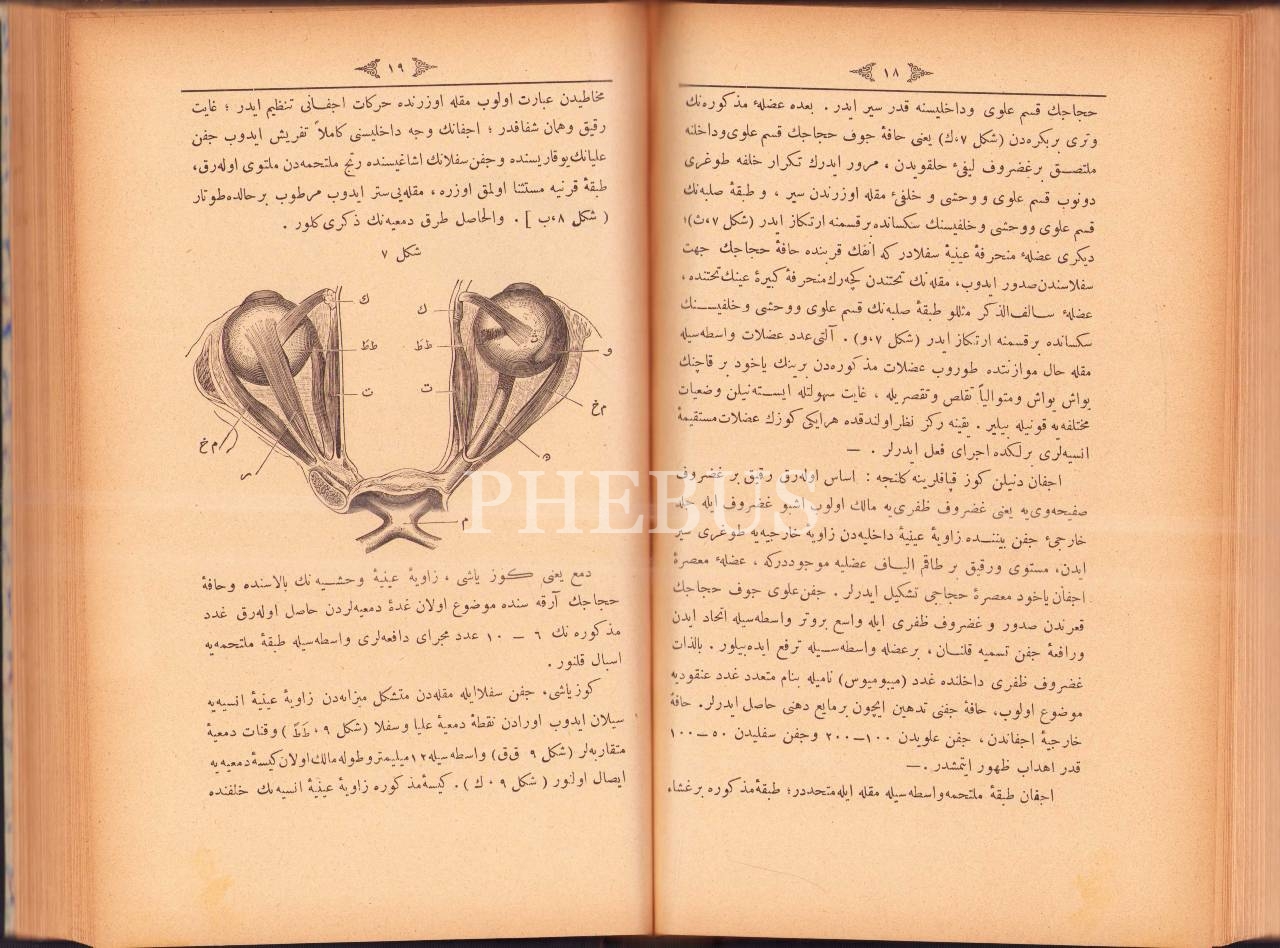 ١٨
حجاجك قسم علوى وداخليسنه قدر سير ايدر . بعده عضلهٔ مذكوره‌نك
وترى بربكره‌دن (شكل ٧،ك) يعنى حافهٔ جوف حجاجك قسم علوى وداخلنه
ملتصق برغضروف ليفئ حلقويدن ، مرور ايدرك تكرار خلفه طوغرى
دونوب قسم علوى ووحشى وخلفئ مقله اوزرندن سير ، و طبقهٔ صلبه‌نك
قسم علوى ووحشى وخلفيسنك سكسانده برقسمنه ارتكاز ايدر (شكل ٧،ث)؛
ديكرى عضلهٔ منحرفهٔ عينيهٔ سفلادركه انفك قربنده حافهٔ حجاجك جهت
سفلاسندن صدور ايدوب، مقله‌نك تحتندن كچه‌رك منحرفهٔ كبيرهٔ عينك تحتنده،
عضلهٔ سالف‌الذكر مثللو طبقهٔ صلبه‌نك قسم علوى ووحشى وخلفيسنك
سكسانده برقسمنه ارتكاز ايدر (شكل ٧،و) . آلتى عدد عضلات واسطه‌سيله
مقله حال موازنتده طوروب عضلات مذكوره‌دن برينك ياخود بر قاچنك
يواش يواش ومتوالياً تقلص وتقصريله ، غايت سهولتله ايسته‌نيلن وضعيات
مختلفه‌يه قونيله بيلير . يقينه ركز نظر اولندقده هرايكى كوزك عضلات مستقيمهٔ
انسيه‌لرى برلكده اجراى فعل ايدرلر . —
اجفان دنيلن كوز قپاقلرينه كلنجه : اساس اوله‌رق رقيق بر غضروف
صفيحه‌وى‌يه يعنى غضروف ظفرى‌يه مالك اولوب اشبو غضروف ايله جلد
خارجئ جفن بيننده زاويهٔ عينيهٔ داخليه‌دن زاويهٔ خارجيه‌يه طوغرى سير
ايدن، مستوى ورقيق بر طاقم الياف عضليه موجوددركه ، عضلهٔ معصرهٔ
اجفان ياخود معصرهٔ حجاجى تشكيل ايدرلر . جفن علوى جوف حجاجك
قعرندن صدور و غضروف ظفرى ايله واسع بروتر واسطه‌سيله اتحاد ايدن
ورافعهٔ جفن تسميه قلنان ، برعضله واسطه‌سيله ترفع ايده‌بيلور . بالذات
غضروف ظفرى داخلنده غدد (ميبوميوس) ناميله بنام متعدد غدد عنقوديه
موضوع اولوب، حافهٔ جفنى تدهين ايچون برمايع دهنى حاصل ايدرلر. حافهٔ
خارجيهٔ اجفاندن، جفن علويدن ١٠٠—٢٠٠ وجفن سفليدن ٥٠—١٠٠
قدر اهداب ظهور ايتمشدر .—
اجفان طبقهٔ ملتحمه واسطه‌سيله مقله ايله متحددر؛ طبقهٔ مذكوره برغشاء
١٩
مخاطيدن عبارت اولوب مقله اوزرنده حركات اجفانى تنظيم ايدر ؛ غايت
رقيق وهمان شفافدر ؛ اجفانك وجه داخليسنى كاملاً تفريش ايدوب جفن
عليانك يوقاريسنده وجفن سفلانك اشاغيسنده رتج ملتحمه‌دن ملتوى اوله‌رق،
طبقهٔ قرنيه مستثنا اولمق اوزره ، مقله‌يى ستر ايدوب مرطوب برحالده طوتار
( شكل ٨،ب ] . والحاصل طرق دمعيه‌نك ذكرى كلور .
شكل ٧
ك
ك
ث
ط ط
ط ط
و
ت
ت
م خ
م خ
ه
س
م
دمع يعنى كوز ياشى ، زاويهٔ عينيهٔ وحشيه‌نك بالاسنده وحافهٔ
حجاجك آرقه سنده موضوع اولان غدهٔ دمعيه‌لردن حاصل اوله‌رق غدد
مذكوره نك ٦ — ١٠ عدد مجراى دافعه‌لرى واسطه‌سيله طبقهٔ ملتحمه‌يه
اسبال قلنور .
كوزياشى، جفن سفلاايله مقله‌دن متشكل ميزابه‌دن زاويهٔ عينيهٔ انسيه‌يه
سيلان ايدوب اورادن نقطهٔ دمعيهٔ عليا وسفلا (شكل ٩ ، ط‌ط ) وقنات دمعيهٔ
متقاربه‌لر (شكل ٩ ق‌ق) واسطه‌سيله ١٢ ميليمتر وطوله مالك اولان كيسهٔ دمعيه‌يه
ايصال اولنور ( شكل ٩ ، ك ). كيسهٔ مذكوره زاويهٔ عينيهٔ انسيه‌نك خلفنده
PHEBUS